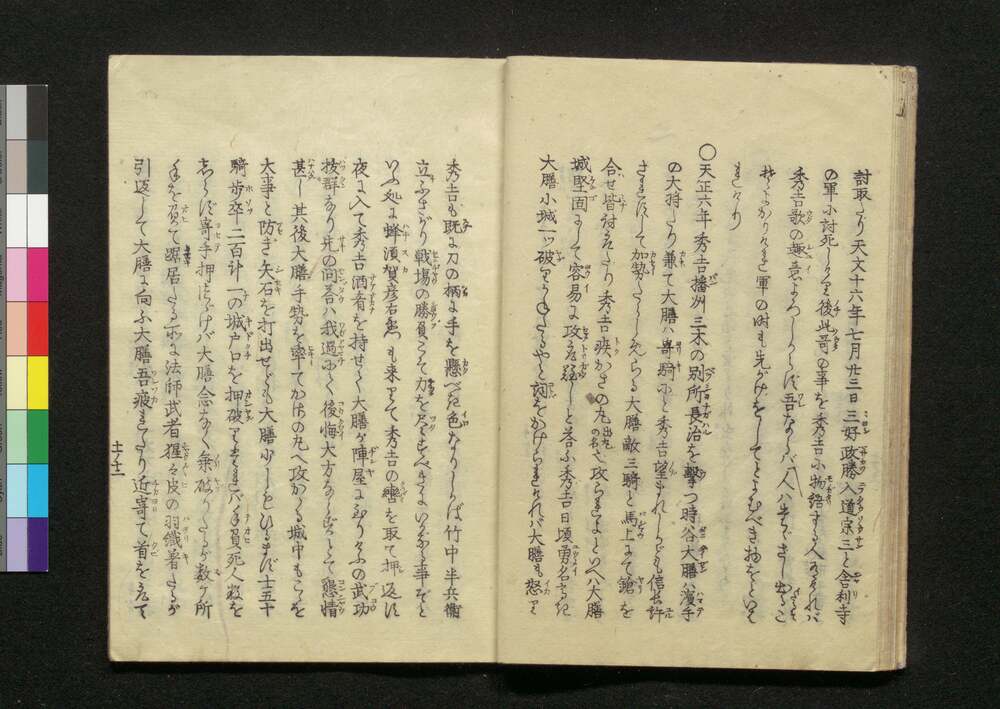 討取たり天文十六年七月廿三日三好政勝入道宗三と舎利寺
の軍に討死しける後此哥の事を秀吉に物語する人ありければ
秀吉歌の趣意よろしからず吾ならバ人ハ先がけ
軍の時も先がけをうしてとよむべき物をといは
れけり
〇天正六年秀吉播州三木の別所長治を撃つ時谷大膳ハ濱手
の大将たり兼て大膳ハ寄騎にと秀吉望まれしかども信長許
さずして加勢たらしめらる大膳敵三騎と馬上にて鎗を
合せ皆討たり秀吉疾かさの丸へ攻られよといへバ大膳
城堅固にして容易に攻しと答ふ秀吉日頃勇名
大膳小城一ツ破りかねたるやと詞をかけられけれバ大膳も怒りて
秀吉も既に刀の柄に手を懸べき色なりしかば竹中半兵衛
立ふさがり戦場の勝負こそ力を尽すべきにいかなる事ぞと
いふ処に蜂須賀彦右衛門も来りて秀吉の轡を取て押返す
夜に入て秀吉酒肴を持せて大膳が陣屋に至りけふの武功
抜群なり先の問答ハ我過にて後悔大方ならずとて懇情
甚し其後大膳手勢を率てかさの丸へ攻かゝる城中もこゝを
大事と防ぎ矢石を打出せども大膳少しもひるまず士五十
騎歩卒二百計一の城戸口を押破りけれバ手負死人数を
しらず寄手押つゞけバ大膳念なく乗破りたるが数ケ所
手を負て踞居たる所に法師武者猩々皮の羽織着たるが
引返して大膳に向ふ大膳吾疲れたり近寄て首を取て
十二